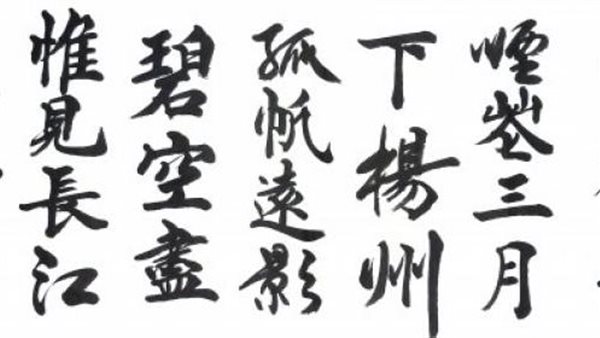 煙花三月
下楊州
孤帆遠影
碧空盡
惟見長江